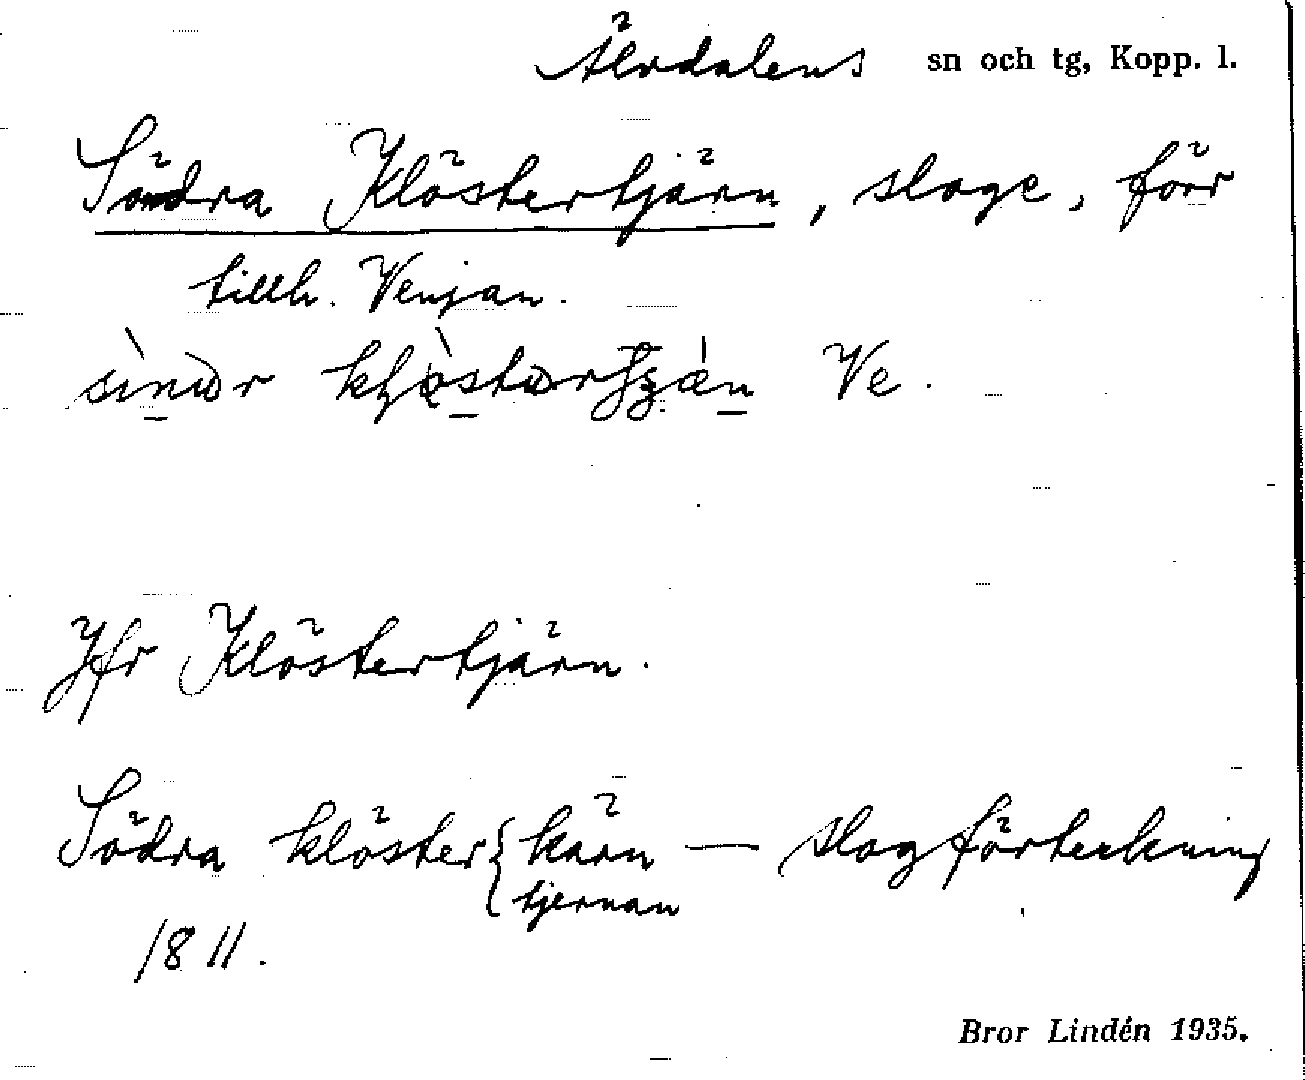 Älvdalens sn och tg, Kopp. l.
Södra Klöstertjärn, sloge, förr
tillh. Venjan.
Ve.
Jfr Klöstertjärn.
Södra klöster { kärn — slogförteckning
tjernan
1811.
Bror Lindén 1935.